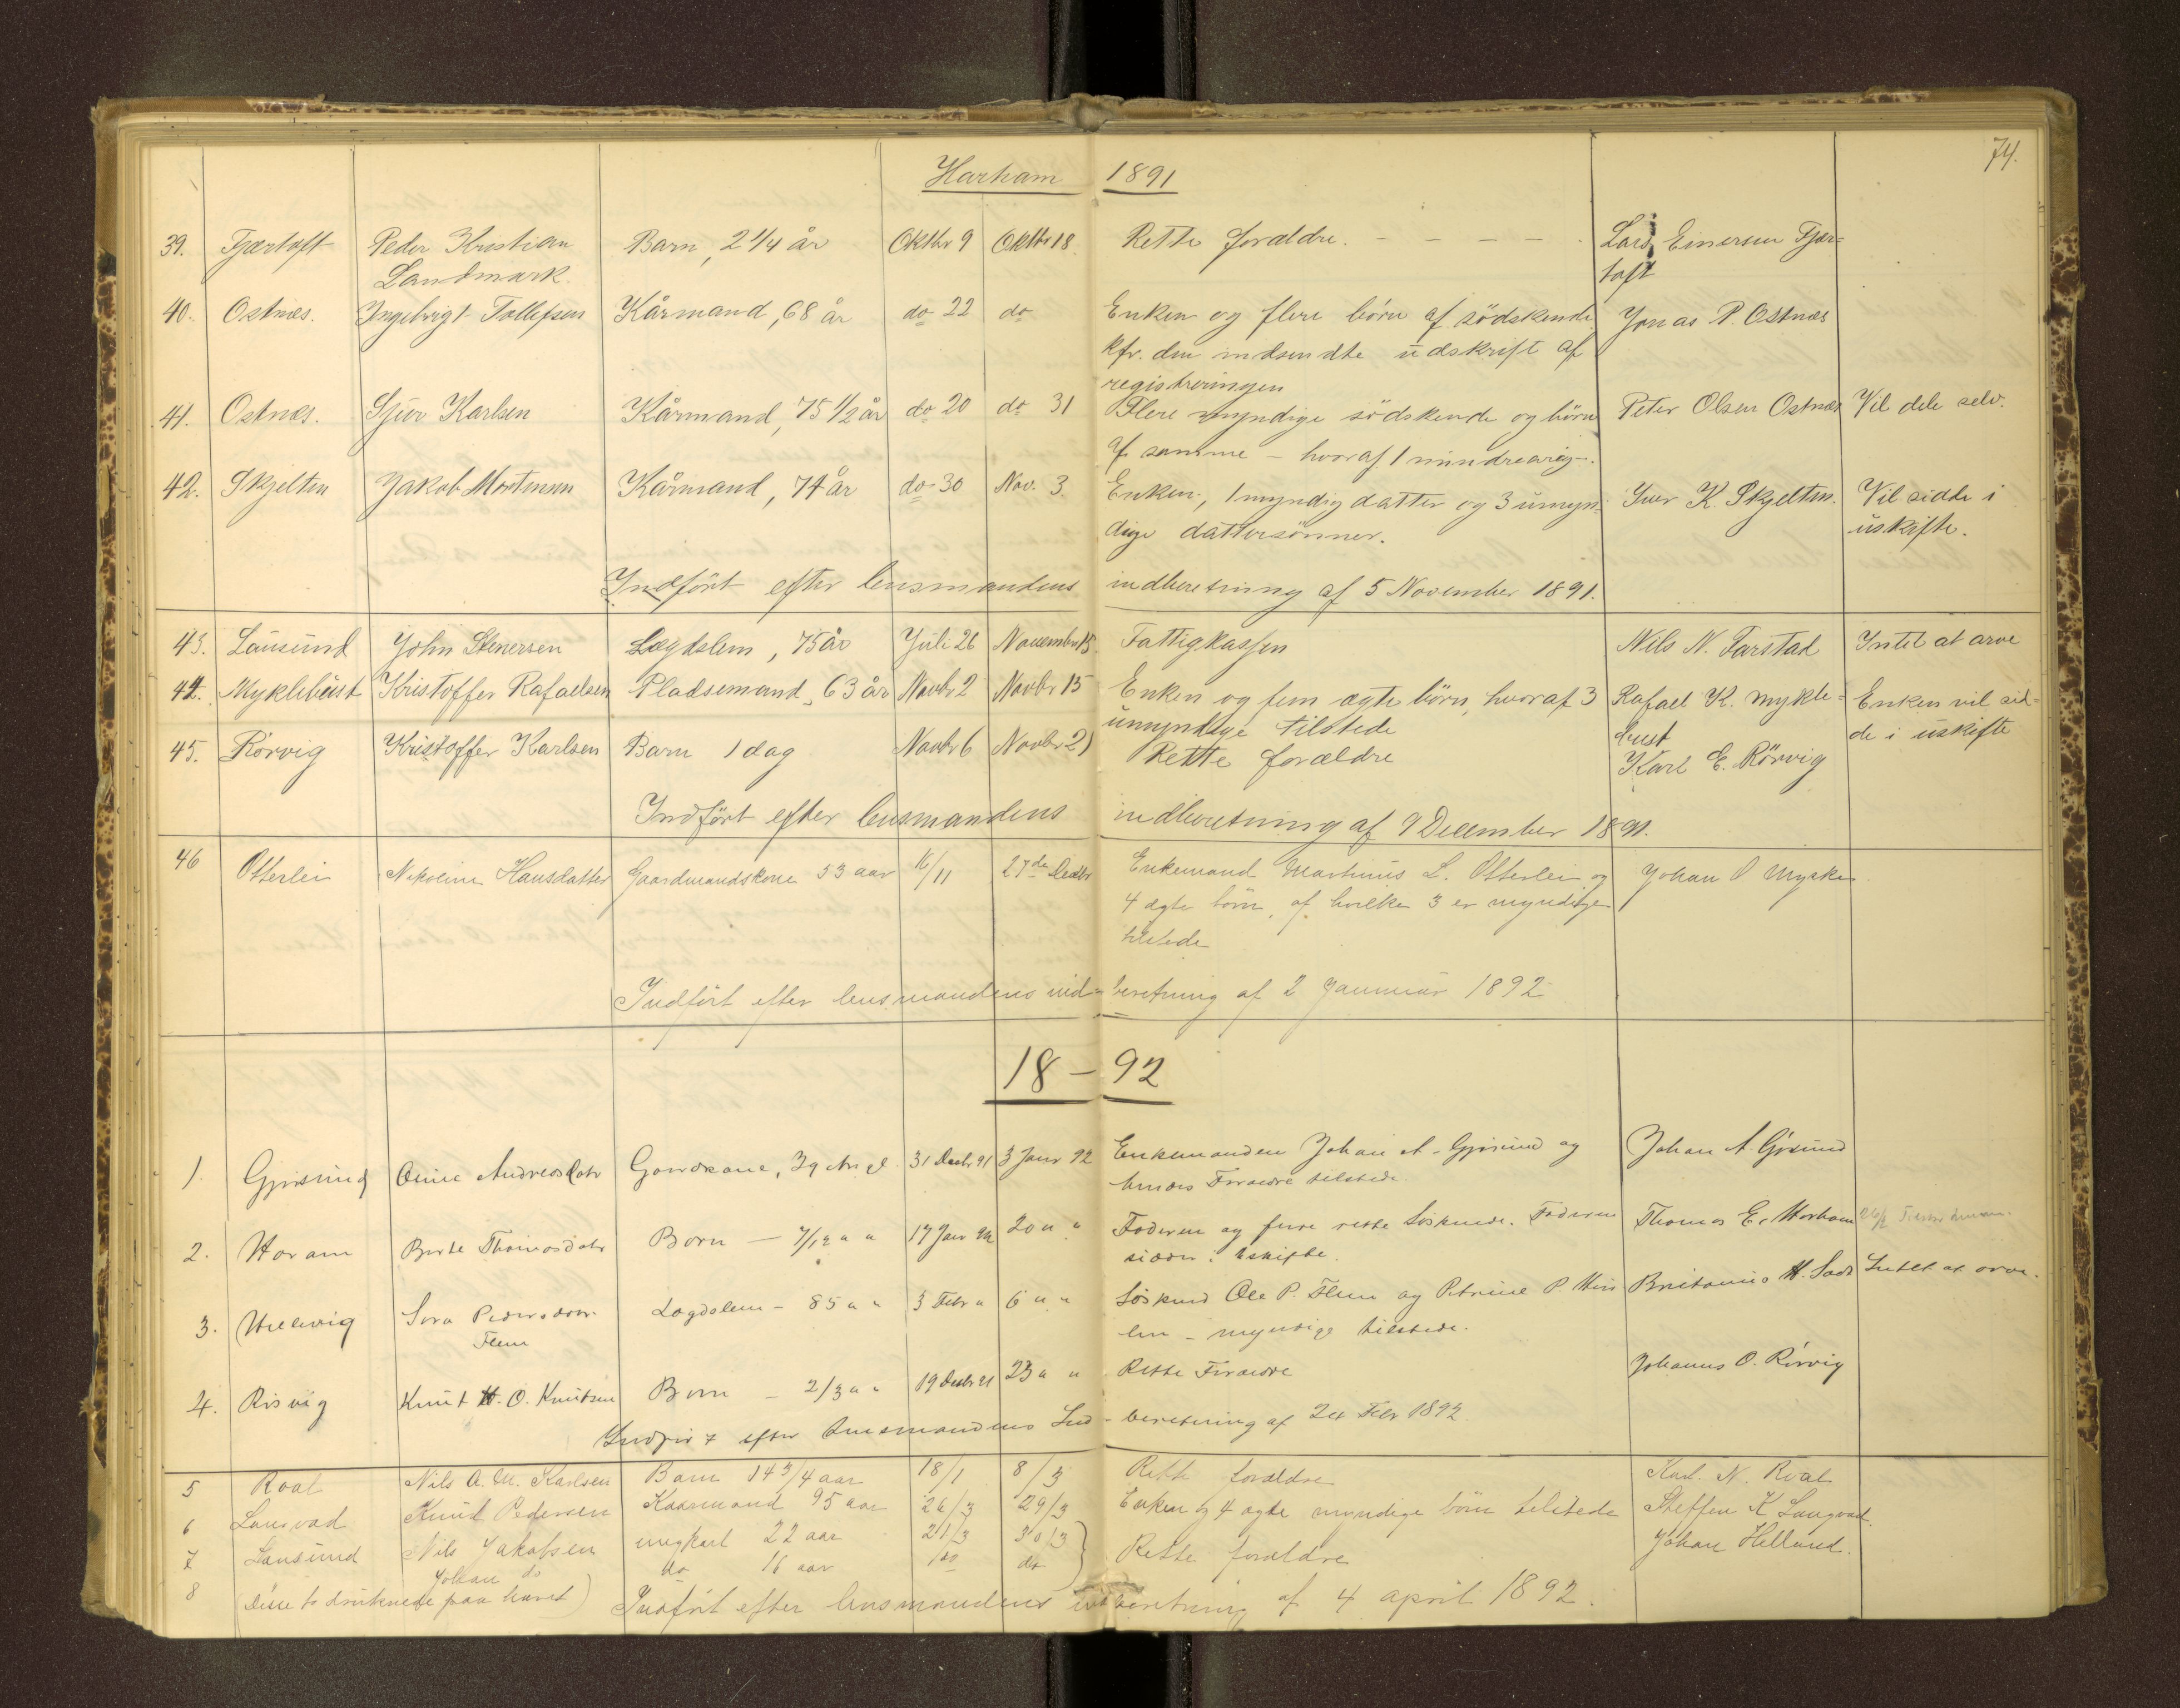 74.
Harham 1891
39. Fjærtoft Peder Kristian Barn, 2 1/4 år Oktbr 9 Oktbr 18 Rette forældre. - - - - Lars Einersen Fjær=
Landmark. toft
40. Ostnæs. Ingebrigt Tollefsen Kårmand, 68 år do 22 do Enken og flere börn af södskende Jonas P. Ostnæs
kfr. den indsendte udskrift af
registreringen
41. Ostnæs. Sjur Karlsen Kårmand, 75 1/2 år do 20 do 31 Flere myndige södskende og börn Peter Olsen Ostnæs Vil dele selv.
af samme - hvoraf 1 mindreårig-.
42. Skjelten Jakob Mortensen Kårmand, 74 år do 30 Nov. 3. Enken, 1 myndig datter og 3 umyn= Iver K. Skjelten. Vil sidde i
dige dattersönner. uskifte.
Indfört efter lensmandens indberetning af 5 November 1891.
43. Lausund John Stenersen Lægdslem, 75 år Juli 26 November 15. Fattigkassen Nils N. Farstad Intet at arve
44. Myklebust Kristoffer Rafaelsen Pladsemand, 63 år Novbr 2 Novbr 15 Enken og fem ægte börn, hvoraf 3 Rafael K. Mykle= Enken vil sid=
umyndige tilstede bust de i uskifte
45. Rörvig Kristoffer Karlsen Barn 1 dag Novbr 6 Novbr 21 Rette forældre Karl E. Rörvig
Indfört efter lensmandens indberetning af 9 December 1891.
46 Otterlei Nikoline Hansdatter Gaardmandskone 53 aar 16/11 27de Decbr Enkemand Martinus L. Otterlei og Johan O Myske
4 ægte börn, af hvilke 3 er myndige
tilstede
Indfört efter lensmandens ind= beretning af 2 Januar 1892
18 - 92
1. Gjøsund Oline Andreasdatr Gaardkone, 39 Aar gl. 31 Decbr 91 3 Janr 92 Enkemanden Johan A. Gjøsund og Johan A. Gjøsund
hendes Forældre tilstede.
2. Haram Berte Thomasdatr Barn - 7/12 " " 17 Janr 92 20 " " Faderen og fire rette Søskende. Faderen Thomas E. Harham
sidder i Uskifte.
3. Hellevig Sera Pedersdatr Lægdslem - 85 " " 3 Febr " 6 " " Søskend Ole P. Flem og Petrine P. Britanius H. Intet at arve.
Flem - myndige tilstede.
4. Rørvig Knut H. O. Knutsen Barn - 2/3 " " 19 Decbr 91 23 " " Rette Forældre Johannes O. Rørvig
Indført efter Lensmandens Ind- beretning af 24 Febr 1892
5 Roal Nils A. M. Karlsen Barn 14 3/4 aar 18/1 8/3 Rette forældre Karl. N. Roal
6 Langvad Knut Pedersen Kaarmand 95 aar 26/3 29/3 Enken og 4 ægte myndige börn tilstede Steffen K Langvad.
7 Lausund Nils Jakobsen ungkarl 22 aar 21/3 30/3 Rette forældre Johan Helland.
8 Johan do do 16 aar do do
(Disse to druknede paa havet)
Indfört efter lensmandens indberetning af 4 april 1892.